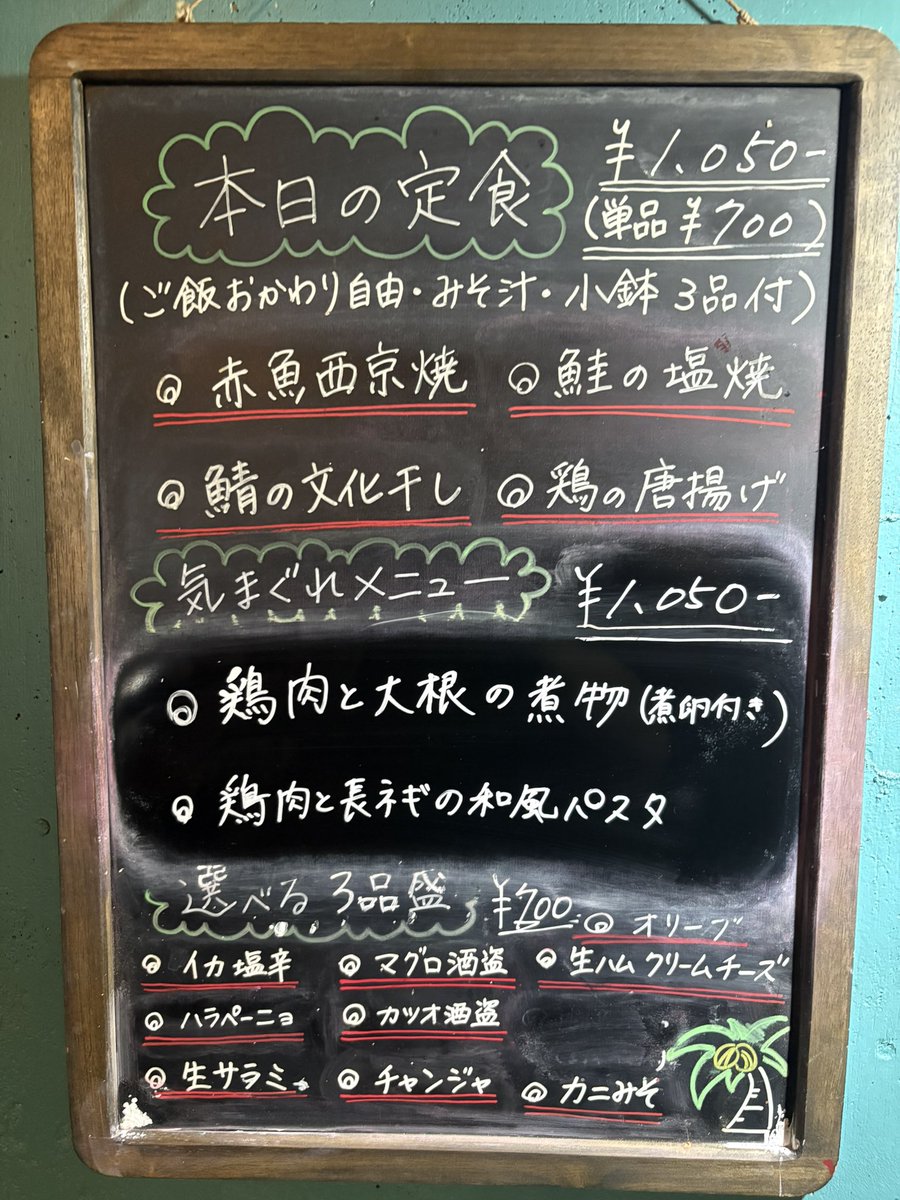 本日の定食 ¥1.050-
(単品¥700)
(ご飯おかわり自由・みそ汁・小鉢3品付)
◎ 赤魚西京焼 ◎ 鮭の塩焼
◎ 鯖の文化干し ◎ 鶏の唐揚げ
気まぐれメニュー ¥1.050-
◎ 鶏肉と大根の煮物(煮卵付き)
◎ 鶏肉と長ネギの和風パスタ
選べる 3品盛 ¥700 ◎ オリーブ
◎ イカ塩辛 ◎ マグロ酒盗 ◎ 生ハムクリームチーズ
◎ ハラペーニョ ◎ カツオ酒盗
◎ 生サラミ ◎ チャンジャ ◎ カニみそ